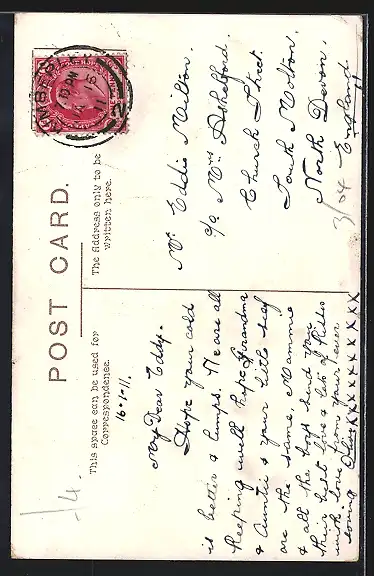 POST CARD.
This space can be used for
Correspondence.
The Address only to be
written here.
16.1.11.
My Dear Eddy.
Hope your cold
is better & lumps. We are all
keeping well hope Grandma
& Auntie & your little self
are the same, Mamma
& all the boys send you
their best love & lots of Kisses
with love from your ever
loving xxxxxxxxxx
Mr Eddie Milton.
c/o Mrs
Church Street.
South Molton.
North Devon.
England.
3/04
1/4.